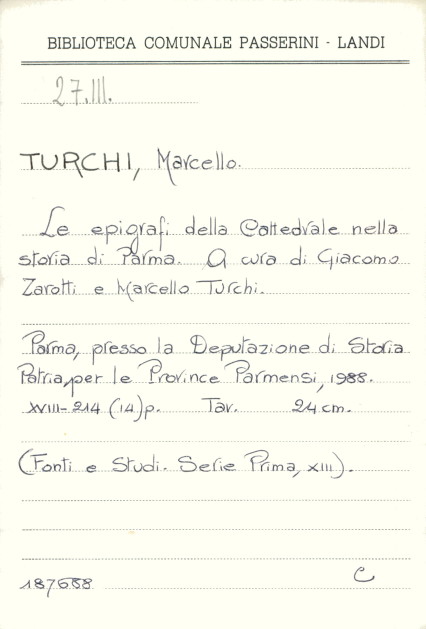 BIBLIOTECA COMUNALE PASSERINI - LANDI
27.III.
TURCHI, Marcello.
Le epigrafi della Cattedrale nella
storia di Parma. A cura di Giacomo
Zarotti e Marcello Turchi.
Parma, presso la Deputazione di Storia
Patria per le Province Parmensi, 1988.
XVIII-214 (14)p. Tav. 24 cm.
(Fonti e Studi. Serie Prima, XIII).
C